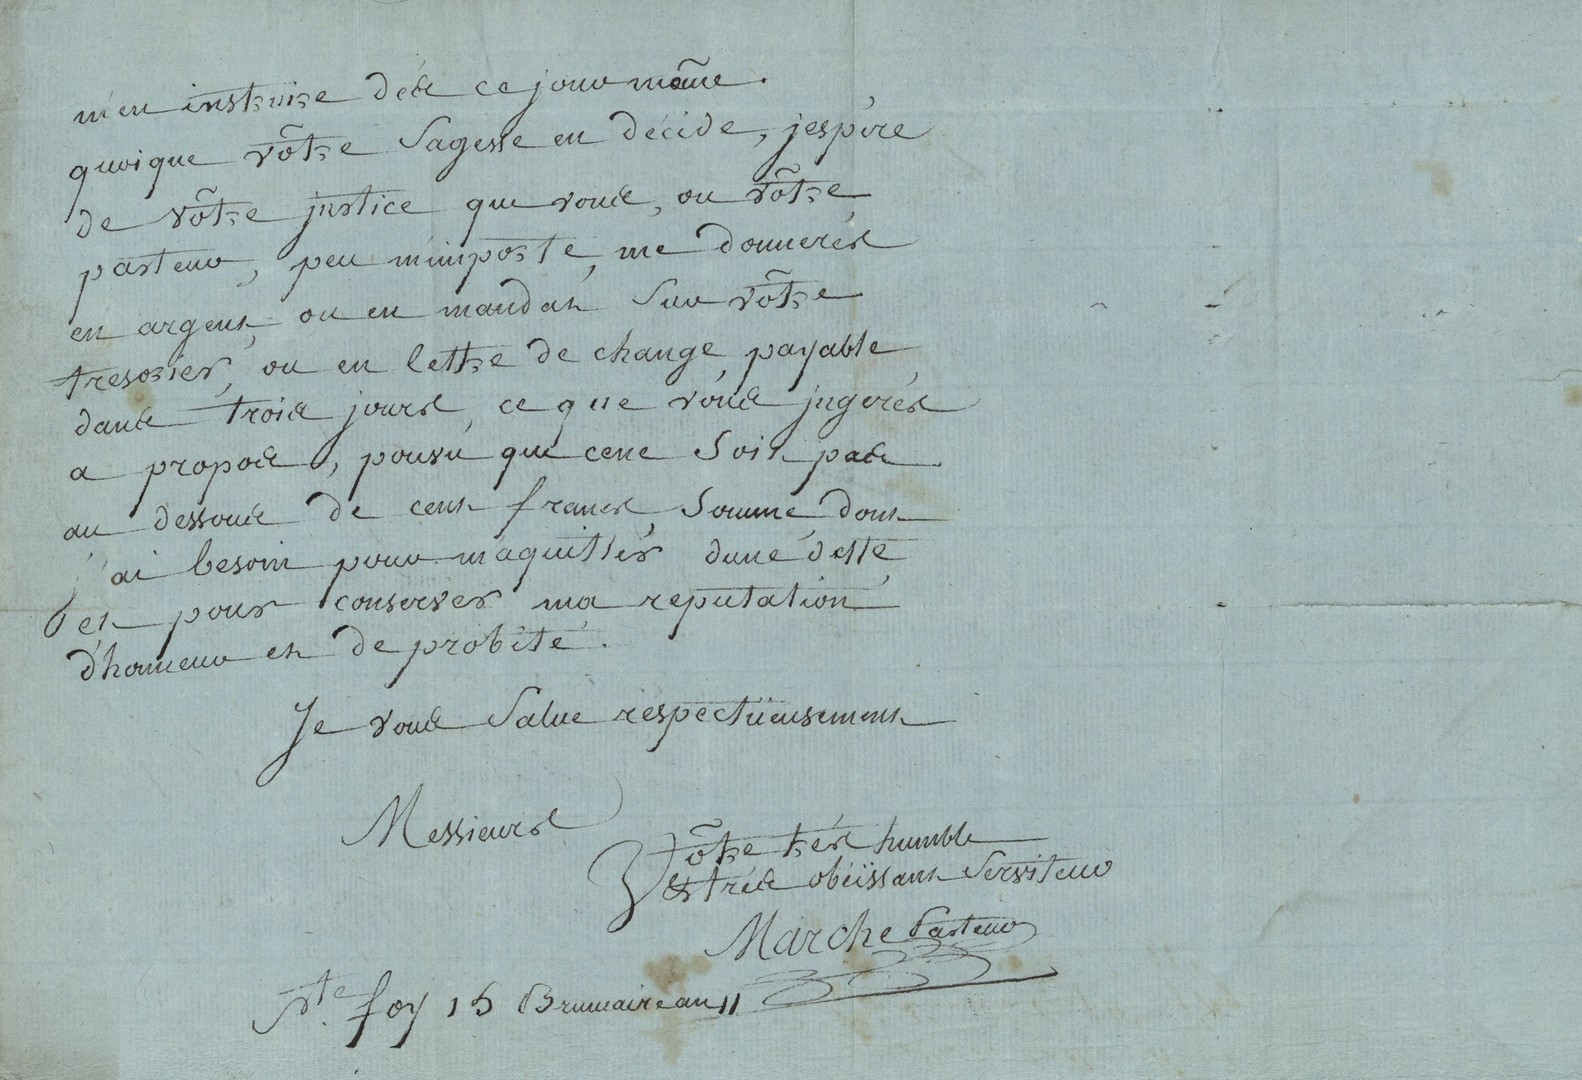 m'en instruire dés ce jour mâme.
quoique vôtre Sagesse en décide, jespére
de vôtre justice que vous, ou vôtre
pasteur, peu m'importe, me donnerés
en argent, ou en mandat Sur vôtre
tresorier, ou en lettre de change payable
dans trois jours, ce que vous jugerés
a propos, pourvu que cene Soit pas
au dessous de cent francs, Somme dont
j'ai besoin pour m'aquitter dune dette,
et pour conserver ma reputation
d'honneur et de probité.
Je vous Salue respectüeusement
Messieurs
Vôtre trés humble
& trés obéïssant Serviteur
Marche Pasteur
Ste. foy 15 Brumaire an 11